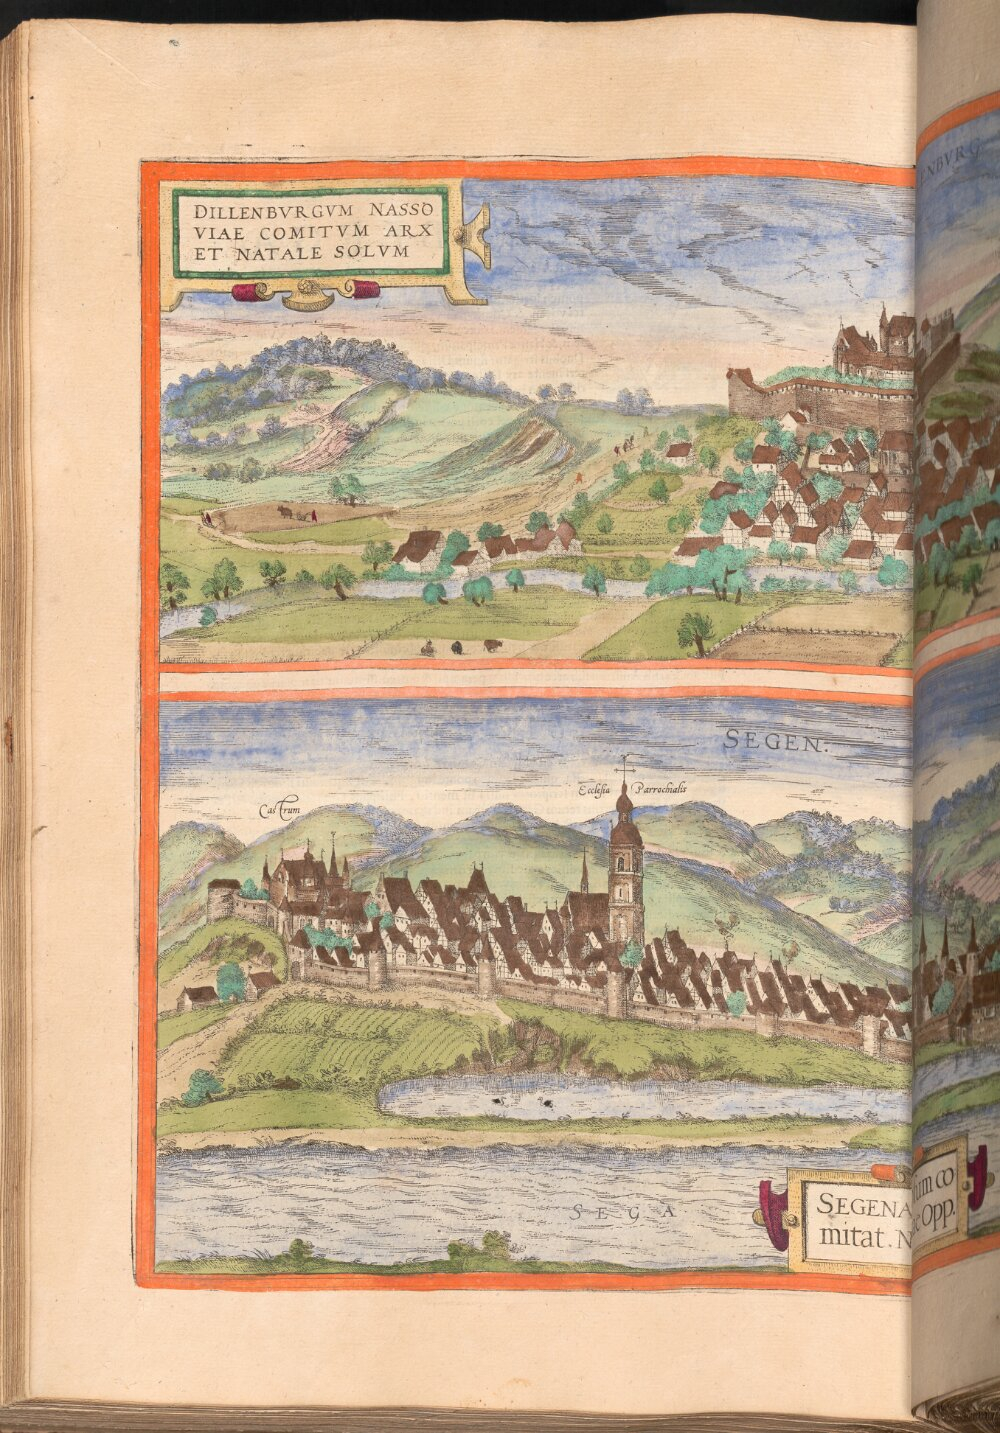 DILLENBVRGVM NASSO
VIAE COMITVM ARX
ET NATALE SOLVM
ENBVRG
SEGEN.
Castrum
Ecclesia Parrochialis
SEGA
SEGENA um co
mitat. N e Opp.